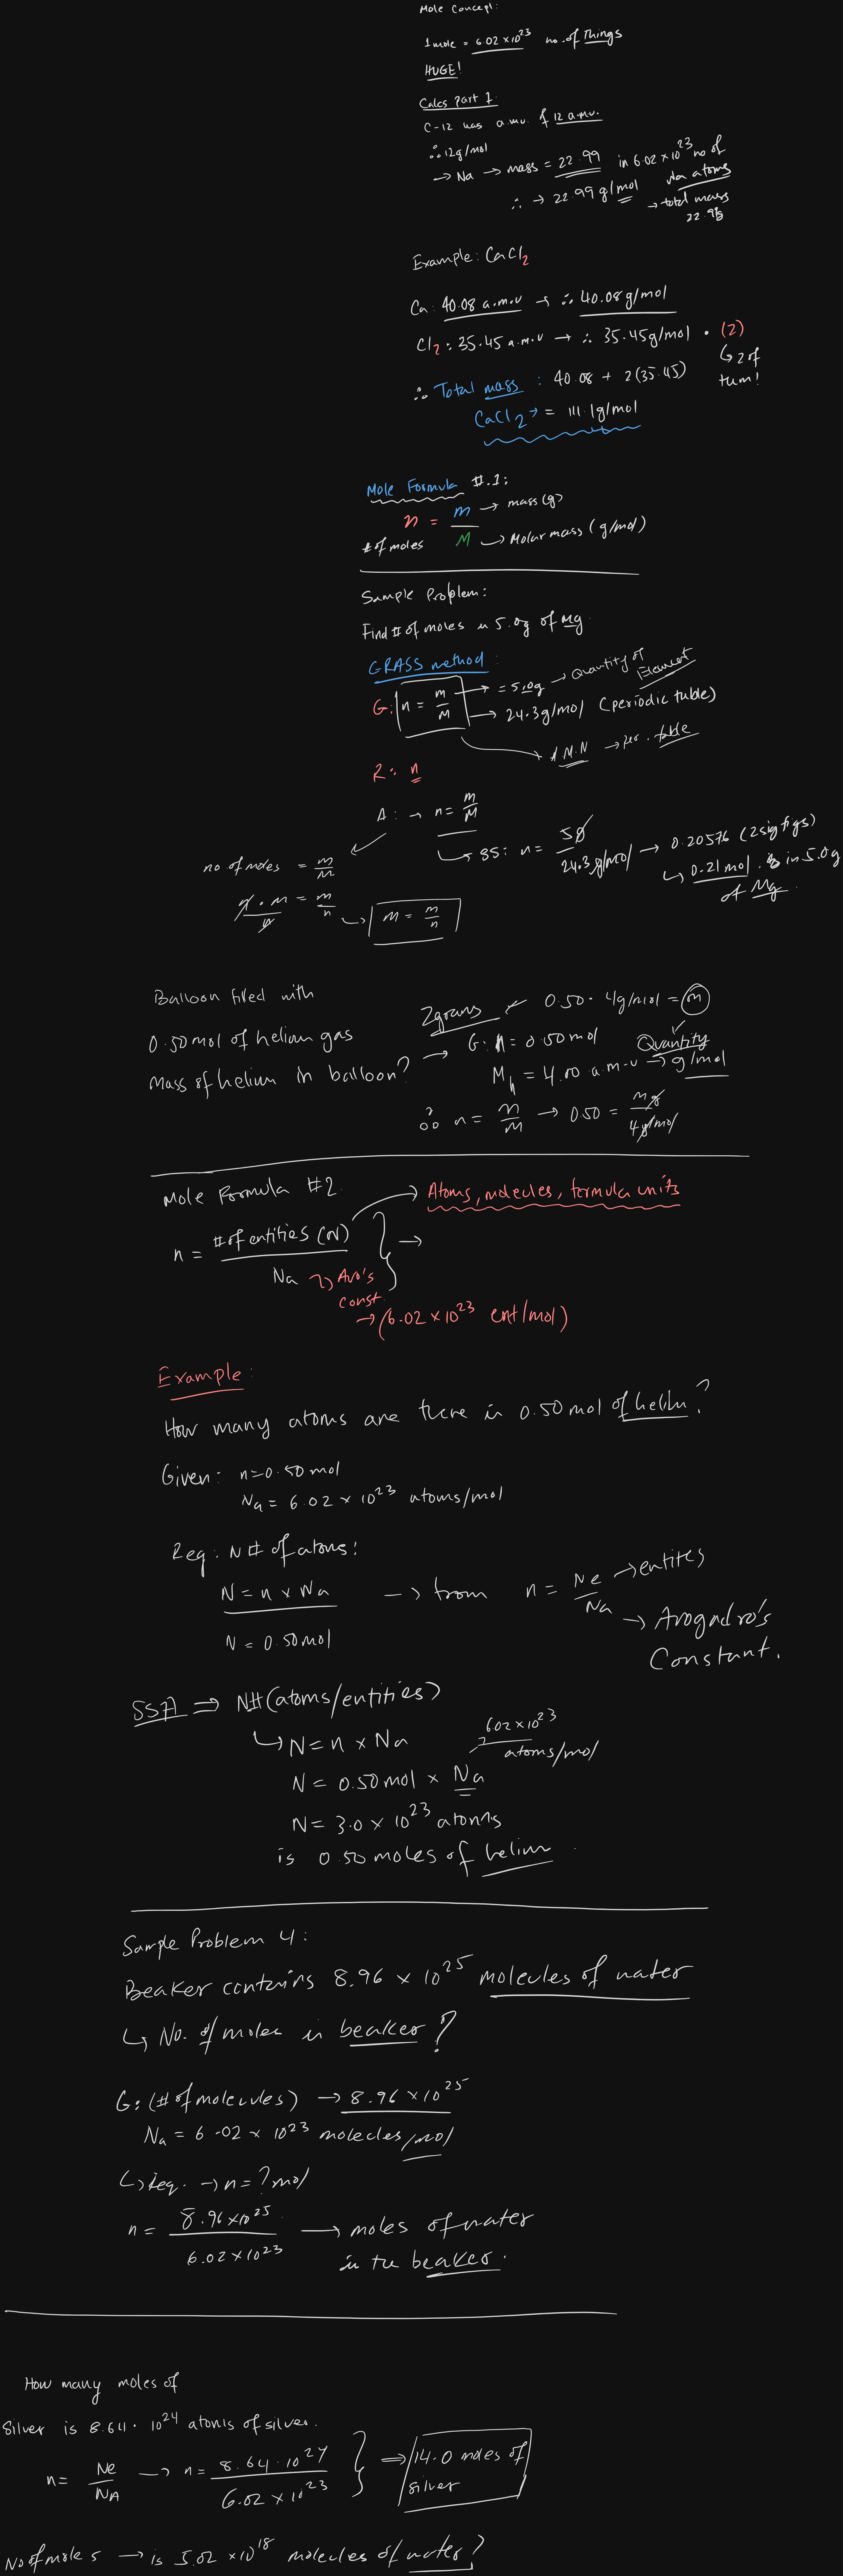 Mole Concept:
1 mole = 6.02 × 10²³ no. of things
HUGE!
Calcs part 1
C-12 has a.m.u. of 12 a.m.u.
∴ 12g/mol
→ Na → mass = 22.99 in 6.02 × 10²³ no of Na atoms
∴ → 22.99 g/mol → total mass 22.99g
Example: CaCl₂
Ca: 40.08 a.m.u → ∴ 40.08g/mol
Cl₂: 35.45 a.m.u → ∴ 35.45g/mol · (2)
↳ 2 of tem!
∴ Total mass : 40.08 + 2(35.45)
CaCl₂ → = 111.1g/mol
Mole Formula #.1:
n = m/M
m → mass (g)
# of moles
M → Molar mass (g/mol)
Sample Problem:
Find # of moles in 5.0g of Mg.
GRASS method:
G: n = m/M → = 5.0g → Quantity of Element
→ 24.3g/mol (periodic table)
M.N → per. table
R: n
A: → n = m/M
↳ SS: n = 5g / 24.3g/mol → 0.20576 (2 sig figs)
↳ 0.21 mol. is in 5.0g of Mg.
no of moles = m/M
n · M / n = m/n → M = m/n
Balloon filled with
0.50 mol of helium gas
Mass of helium in balloon? →
2 grams ← 0.50 · 4g/mol = m
G: n = 0.50 mol Quantity
Mₕ = 4.00 a.m.u → g/mol
∴ n = m/M → 0.50 = mg / 4g/mol
Mole Formula #2
→ Atoms, molecules, formula units
n = # of entities (N) / Na } →
Avo's const.
→ (6.02 × 10²³ ent/mol)
Example:
How many atoms are there in 0.50 mol of helium?
Given: n=0.50 mol
Na = 6.02 × 10²³ atoms/mol
Req: N # of atoms:
N = n × Na → from n = Ne/Na → entites
→ Avogadro's Constant.
N = 0.50 mol
SSA ⇒ N# (atoms/entities)
↳ N = n × Na
602 × 10²³ atoms/mol
N = 0.50 mol × Na
N = 3.0 × 10²³ atoms
is 0.50 moles of helium.
Sample Problem 4:
Beaker contains 8.96 × 10²⁵ molecules of water
↳ No. of moles in beaker?
G: (# of molecules) → 8.96 × 10²⁵
Na = 6.02 × 10²³ molecles/mol
↳ Req. → n = ? mol
n = 8.96 × 10²⁵ / 6.02 × 10²³ → moles of water
in the beaker.
How many moles of
silver is 8.64 · 10²⁴ atoms of silver.
n = Ne/NA → n = 8.64 · 10²⁴ / 6.02 × 10²³ } ⇒ 14.0 moles of silver
No of moles → is 5.02 × 10¹⁸ molecules of water?